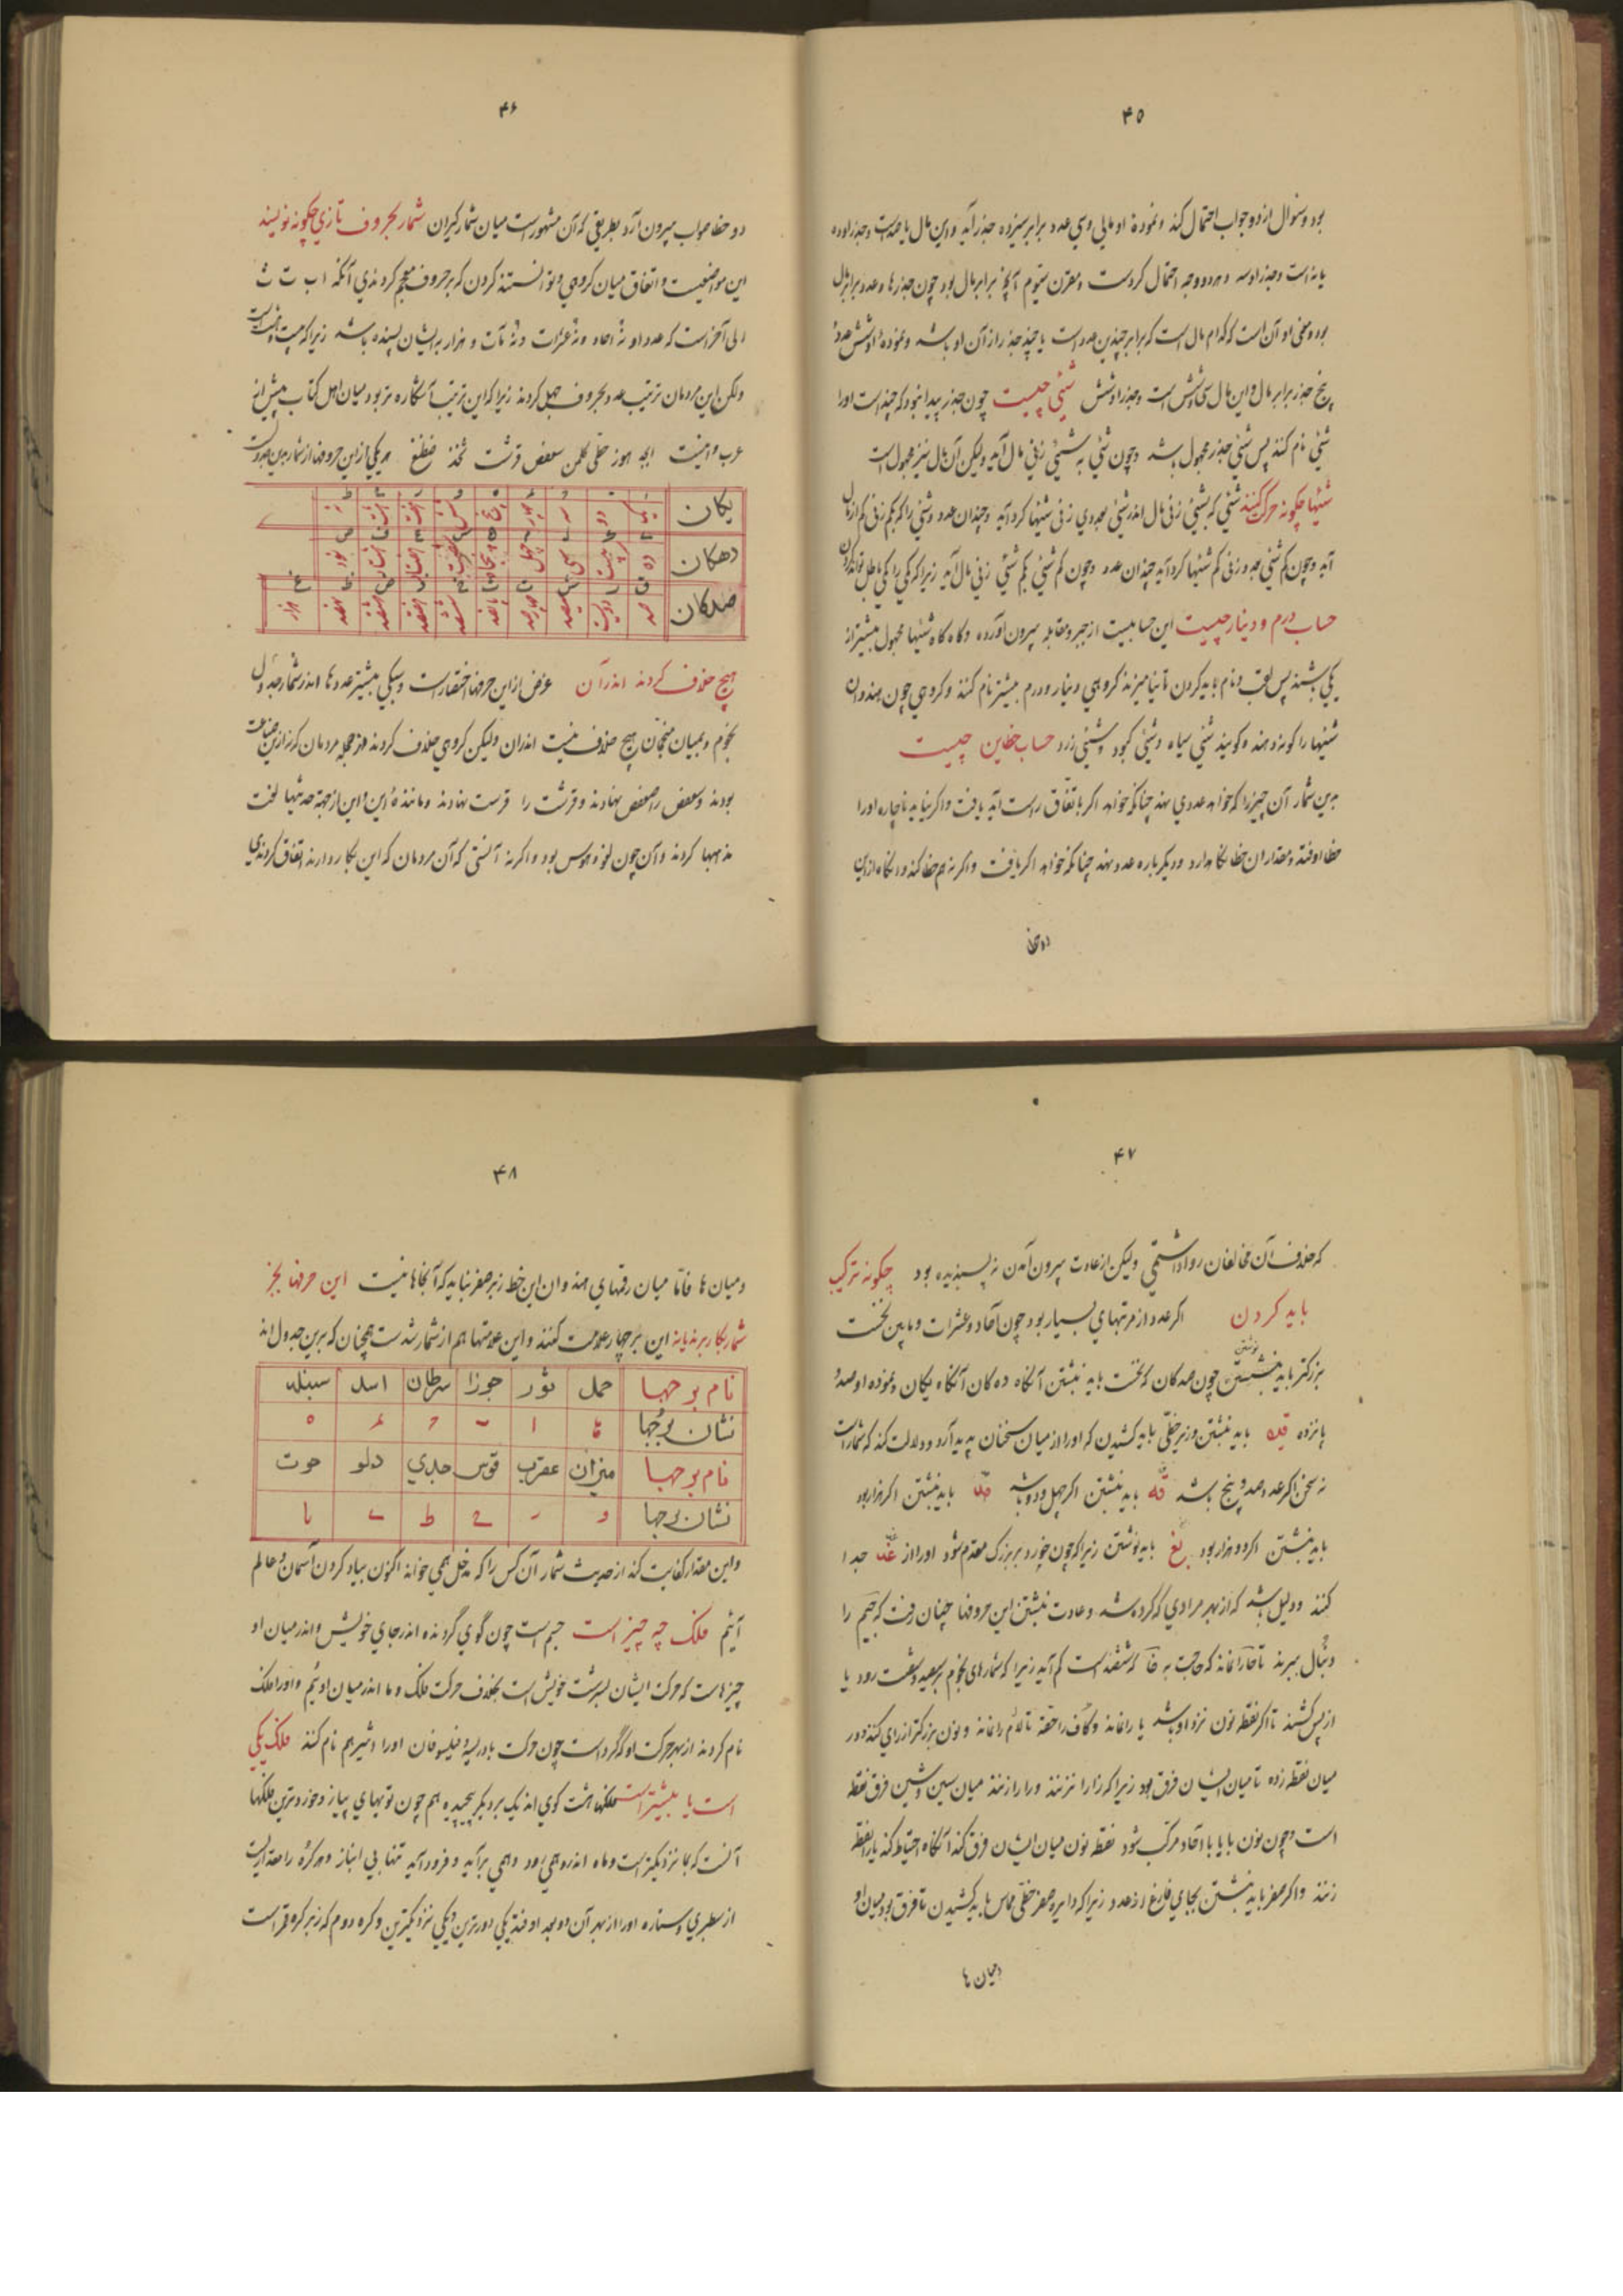 ۴۵
بود و سوال از دو جواب احتمال کند و نموده او مالی و سی عدد برابر سیزده جذر آید و این مال یا صد است و جذر او ده
یا نه است و جذر او سه و هردو وجه احتمال کردست و مقترن سیّوم آنچ برابر مال بود چون جذرها و عدد برابر مال
بود و معنی او آن است که کدام مال است که برابر چندین عدد است با چند جذر از آن او باشد و نموده او شش عدد و
پنج جذر برابر مال و این مال سی و شش است و جذر او شش شئی چیست چون جذر پیدا نبود که چند است او را
شئی نام کنند پس شئی جذر مجهول باشد و چون شئی به شئی زنی مال آید ولیکن آن مال نیز مجهول است
شئیها چگونه حرکت کنند شئی که بشئی زنی مال اندر شئی بعددی زنی شئیها گرد آید و چندان عدد و شئی را که بکم زنی کم از مال
آید و چون کم شئی بعدد زنی کم شئیها گرد آید چندان عدد و چون کم شئی بکم شئی زنی مال آید زیرا که کمی را کمی باطل تواند کردن
حساب درم و دینار چیست این حسابیست از جبر و مقابله بیرون آورده و گاه گاه شئیها مجهول بیشتر از
یکی باشند پس لقب و نام باید کردن تا نیامیزند گروهی دینار و درم بیشتر نام کنند و گروهی چون هندوان
شئیها را گونه دهند و گویند شئی سیاه و شئی کبود و شئی زرد حساب خطاین چیست
برین شمار آن چیز را که خواهد عددی نهد چنانکه خواهد اگر باتفاق راست آید یافت و اگر نیاید ناچاره او را
خطا اوفتد و مقدار آن خطا نگاه دارد و دیگر باره عدد نهد چنانکه خواهد اگر یافت و اگر نه هم خطا کند و آنگاه از این
دو خطا
۴۶
دو خطا صواب بیرون آرد بطریقی که آن مشهور است میان شمارگیران شمار بحروف تازی چگونه نویسند
این مواضعیت و اتفاق میان گروهی و توانستند کردن که بر حروف معجم کردندی آنکه ا ب ت ث
الی آخر است که عدد او نه احاد و نه عشرات و نه مآت و هزار بدیشان بسنده باشد زیرا که بیست و هشت است
ولکن این مردمان ترتیب عدد بحروف جمل کردند زیرا که این ترتیب آشکاره تر بود میان اهل کتاب پیش از
عرب و اینست ابجد هوز حطی کلمن سعفص قرشت ثخذ ضظغ هر یکی از این حروفها از شمار بدین جدولست
یکان ا یکی ب دو ج سه د چهار ه پنج و شش ز هفت ح هشت ط نه
دهکان ی ده ک بیست ل سی م چهل ن پنجاه س شصت ع هفتاد ف هشتاد ص نود
صدکان ق صد ر دویست ش سیصد ت چهارصد ث پانصد خ ششصد ذ هفتصد ض هشتصد ظ نهصد غ هزار
هیچ خلاف کردند اندر آن غرض از این حرفها اختصارست و سبکی بیشتر عددها اندر شمار جدول
نجوم و بمیان منجمان هیچ خلاف نیست اندران ولیکن گروهی خلاف کردند از جمله مردمان که نه از این صناعت
بودند و سعفص را صعفض نهادند و قرشت را قرست نهادند و مانند این و این از جهة حدیثها لخت
مذهبها کردند و آن چون لغو و هوس بود و اگر نه آنستی که آن مردمان که این بکار دارند اتفاق کردندی
۴۷
که خلاف آن مخالفان روا داشتمی ولیکن از عادت بیرون آمدن نه پسندیده بود چگونه ترکیب
باید کردن اگر عدد از مرتبهای بسیار بود چون آحاد و عشرات و مایین نخست
بزرگتر باید نبشتن چون صدکان که نخست باید نبشتن آنگاه ده کان آنگاه یکان و نموده او صد و
پانزده قیه باید نبشتن و زبر خطی باید کشیدن که او را از میان سخنان پدید آرد و دلالت کند که شمارست
نه سخن اگر عدد صد و پنج باشد قه باید نبشتن اگر چهل و دو باشد مب باید نبشتن اگر هزار بود
باید نبشتن اگر دو هزار بود بغ باید نوشتن زیرا که چون خورد بر بزرگ مقدم شود او را از غب جدا
کنند و دلیل باشد که از بهر مرادی که کرده شد و عادت نبشتن این حروفها چنان رفت که جیم را
دنبال ببرند تا خا را نماند که حاجت به خا که ششصد است کم آید زیرا که شمارهای نجوم بر سیصد و شصت رود یا
از پس کشند تا اگر نقطه نون نزد او باشد یا را نماند و کاف را خفته تا لام را نماند و نون بزرگتر از رای کنند و در
میان نقطه زده تا میان ایشان فرق بود زیرا که زا را نزنند و را را زنند میان سین و شین فرق نقطه
است و چون نون با یا با آحاد مرکب شود نقطه نون میان ایشان فرق کند آنگاه احتیاط کند یا را نقطه
زنند و اگر صفر باید نبشتن بجای فارغ از عدد زیرا که دایره صفر خطی مماس باید کشیدن تا فرق بود میان او
و میان ها
۴۸
و میان ها فاما میان رقمهای هند وان این خط زبر صفر نباید که آنجا ها نیست این حرفها بجز
شمار بکار برند یا نه این برجها را علامت کنند و این علامتها هم از شمار شدست همچنان که برین جدول اند
نام برجها حمل ثور جوزا سرطان اسد سنبله
نشان برجها ۰ ا ب ج د ه
نام برجها میزان عقرب قوس جدی دلو حوت
نشان برجها و ز ح ط ی یا
و این مقدار کفایت کند از حدیث شمار آن کس را که مدخل همی خواند اکنون بیاد کردن آسمان و عالم
آئیم فلک چه چیز است جسم است چون گوی گردنده اندر جای خویش و اندر میان او
چیزهاست که حرکت ایشان بسرشت خویش است بخلاف حرکت فلک و ما اندر میان اوئیم و او را فلک
نام کردند از بهر حرکت او که گرد است چون حرکت بادریسه و فیلسوفان او را اثیر هم نام کنند فلک یکی
است یا بیشتر است فلکها هشت گوی اند یک بر دیگر پیچیده هم چون تویهای پیاز و خورد ترین فلکها
آنست که بما نزدیکتر است و ماه اندرو همی رود و همی برآید و فرود آید تنها بی انباز و هر کره را مقداریست
از سطبری و ستاره او را از بهر آن دو بعد اوفتد یکی دورترین و یکی نزدیکترین و کره دوم که زبر کره قمر است